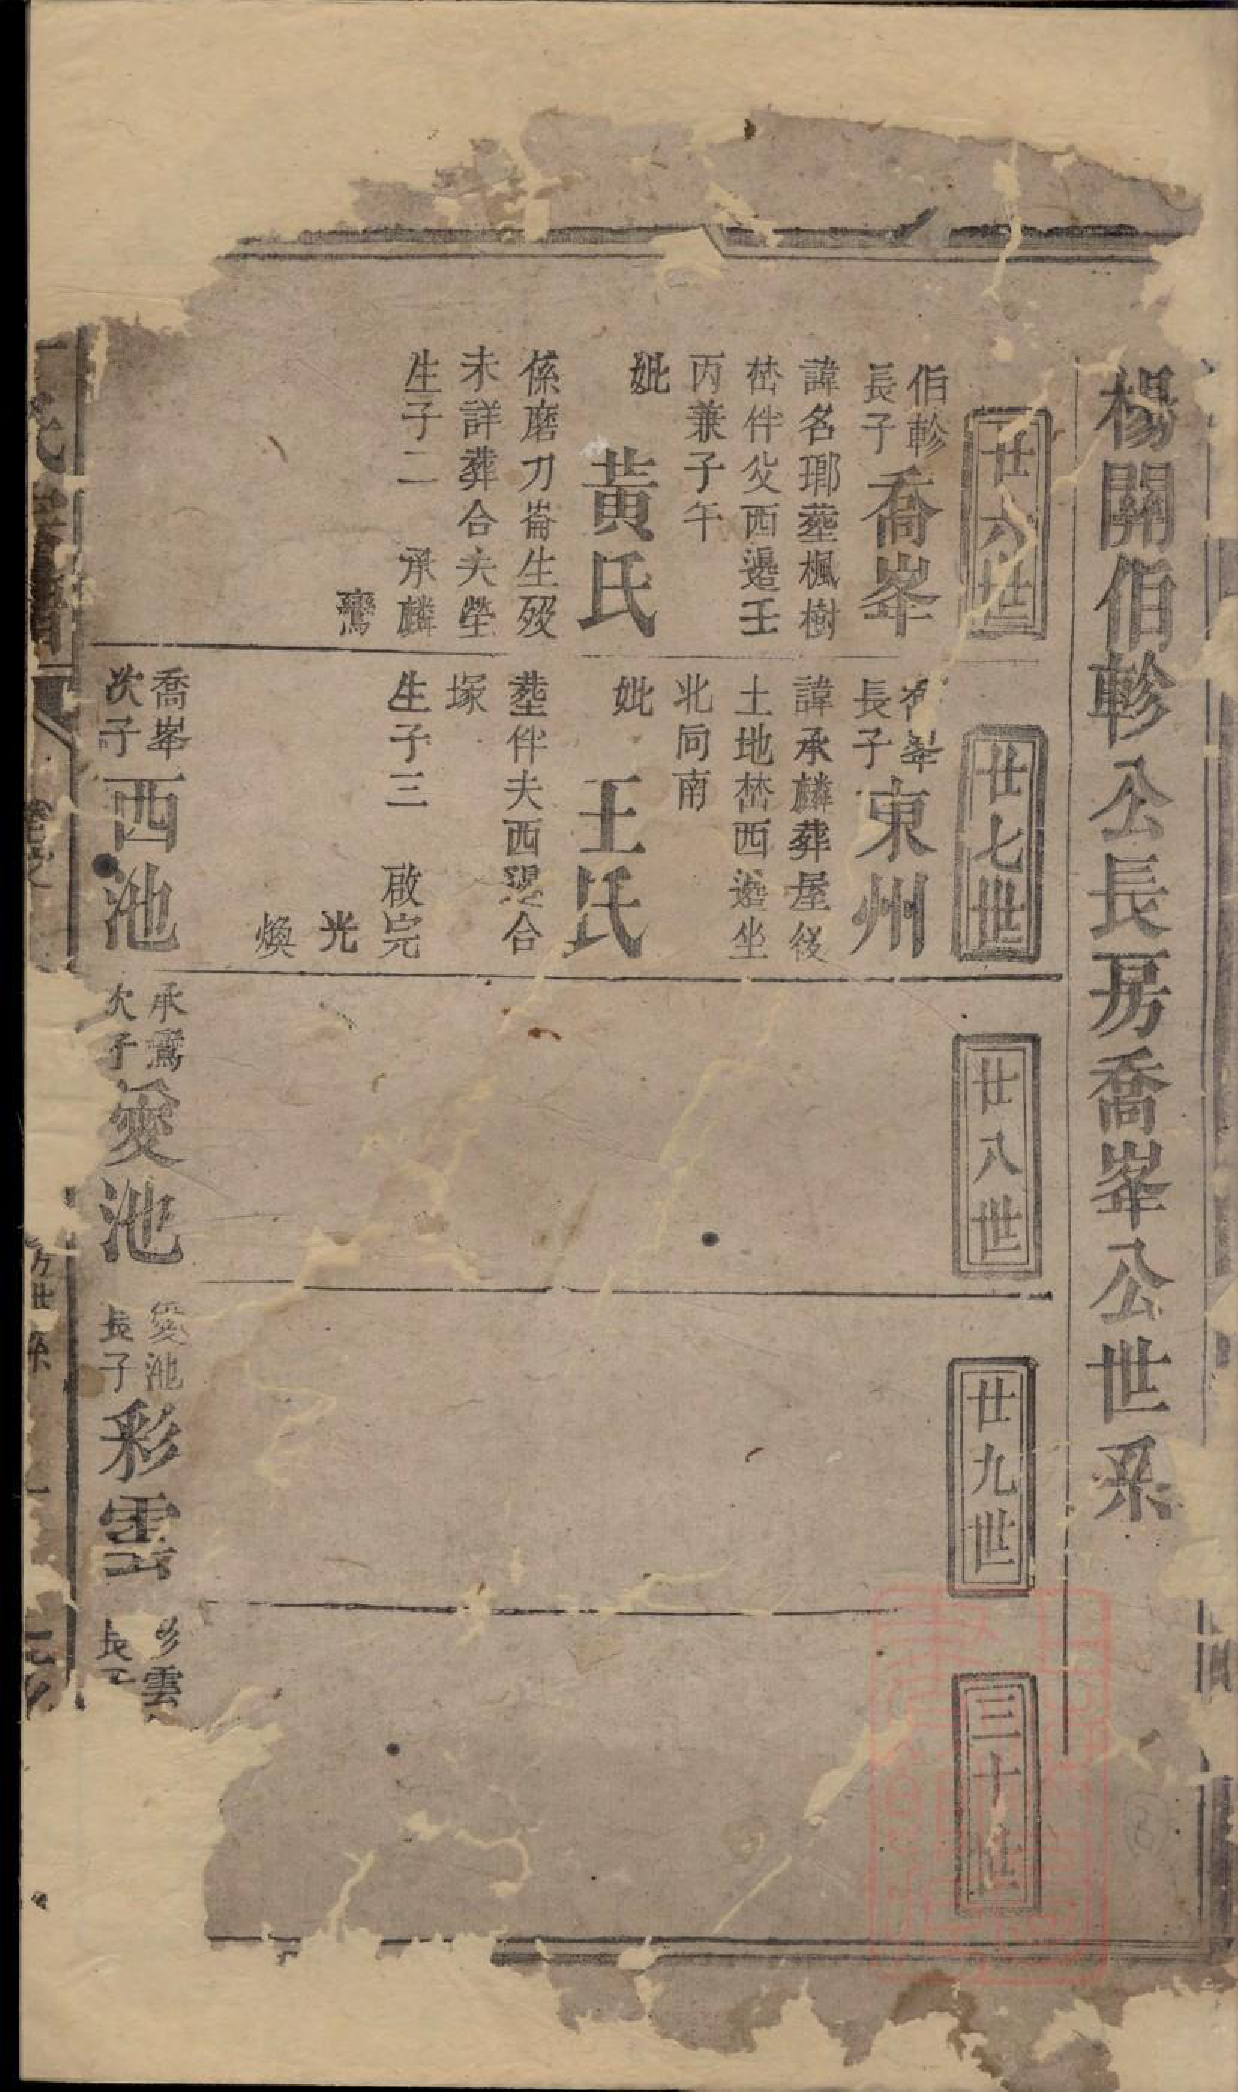 楊開伯軫公長房喬峯公世系
廿六世
伯軫
長子
喬峯
諱名瑯塟楓樹
嵆伴父西邊壬
丙兼子午
妣
黃氏
係磨刀崙生歿
未詳葬合夫塋
生子二 承麟
鸞
廿七世
喬峯
長子
東州
諱承麟葬屋後
土地嵆西邊坐
北向南
妣
王氏
塟伴夫西邊合
塚
生子三 啟完
光
煥
喬峯
次子
西池
廿八世
承鸞
次子
愛池
廿九世
愛池
長子
彩雲
三十世
彩雲
長子